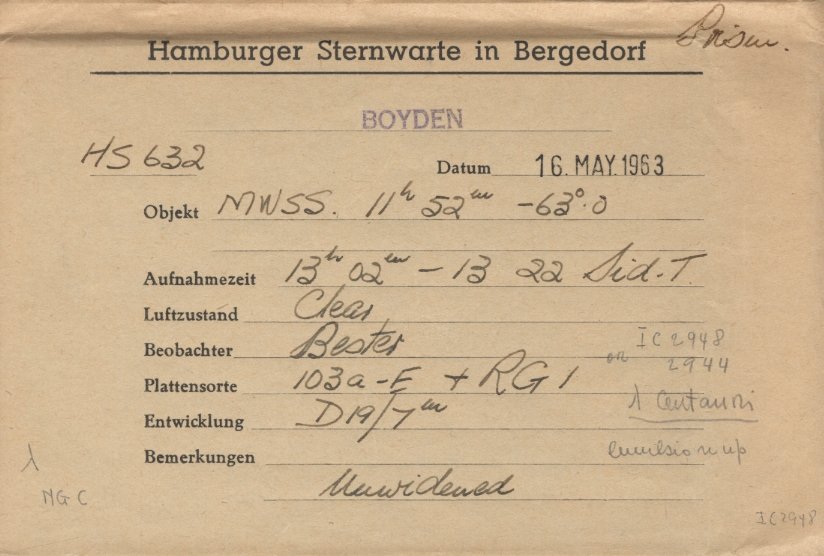 Prism.
Hamburger Sternwarte in Bergedorf
BOYDEN
HS 632
Datum 16. MAY. 1963
Objekt MWSS. 11h 52m -63°.0
Aufnahmezeit 13h 02m - 13 22 Sid.T.
Luftzustand Clear
Beobachter Bester
IC 2948
on 2944
Plattensorte 103a-E + RG1
λ Centauri
Entwicklung D19/7m
Bemerkungen emulsion up
Unwidened
λ
NGC
IC2948